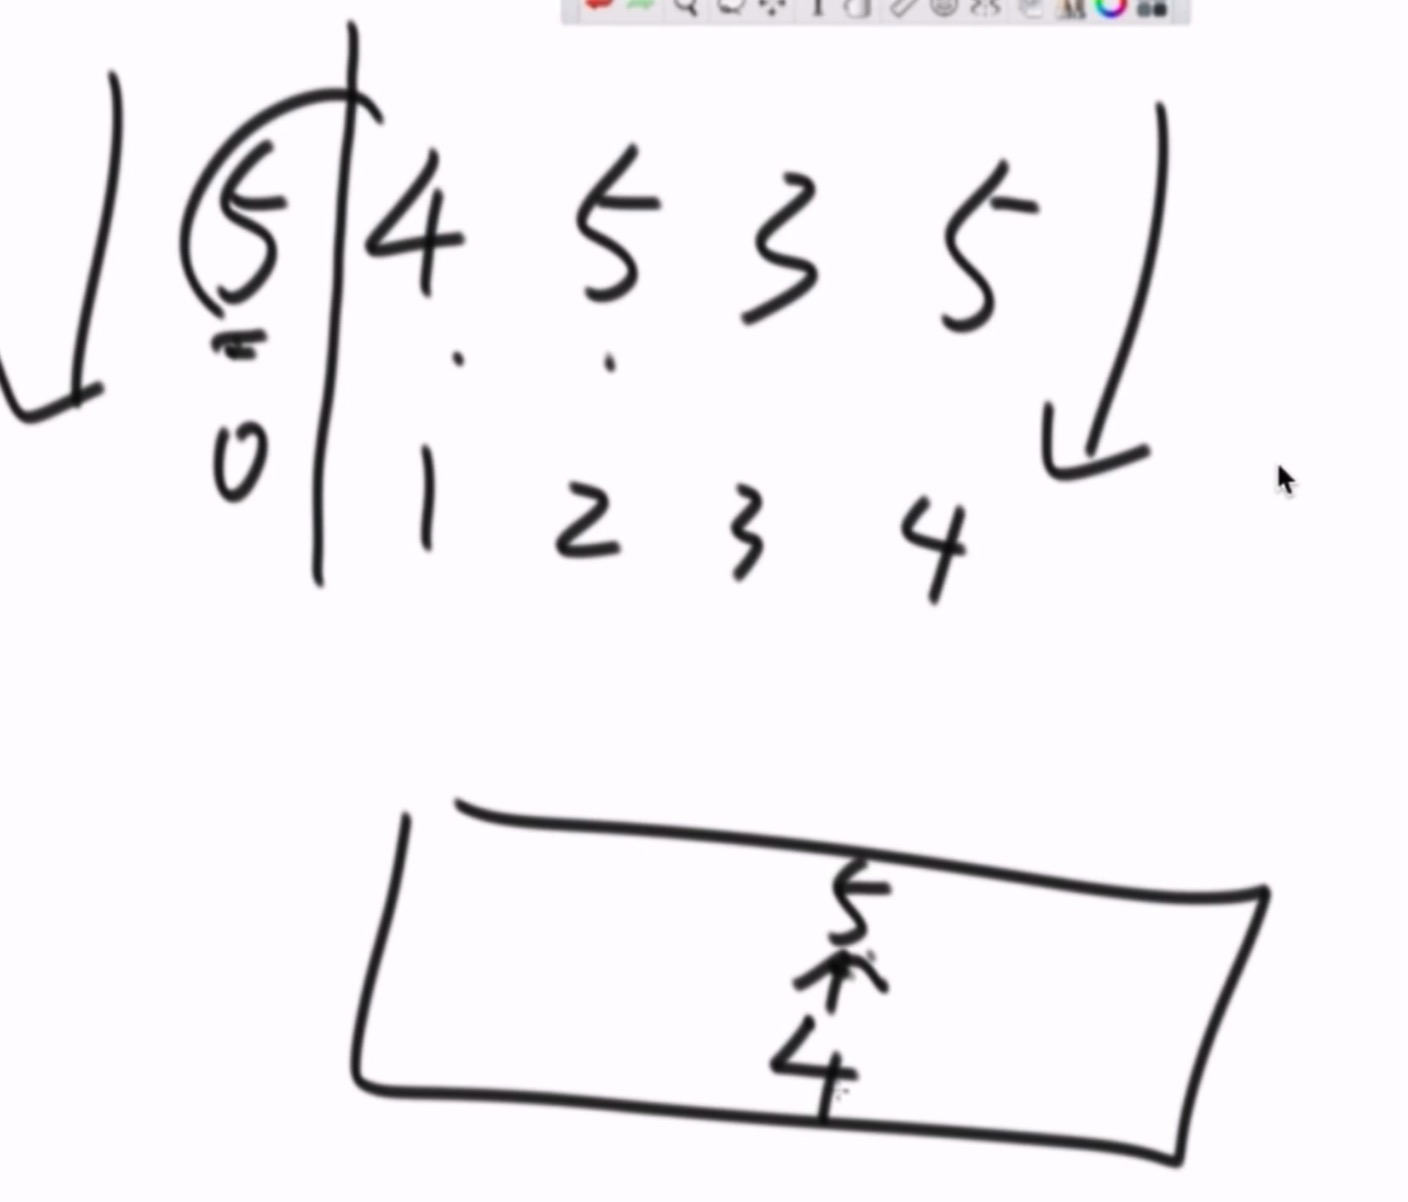 5 4 5 3 5
0 1 2 3 4
5
4